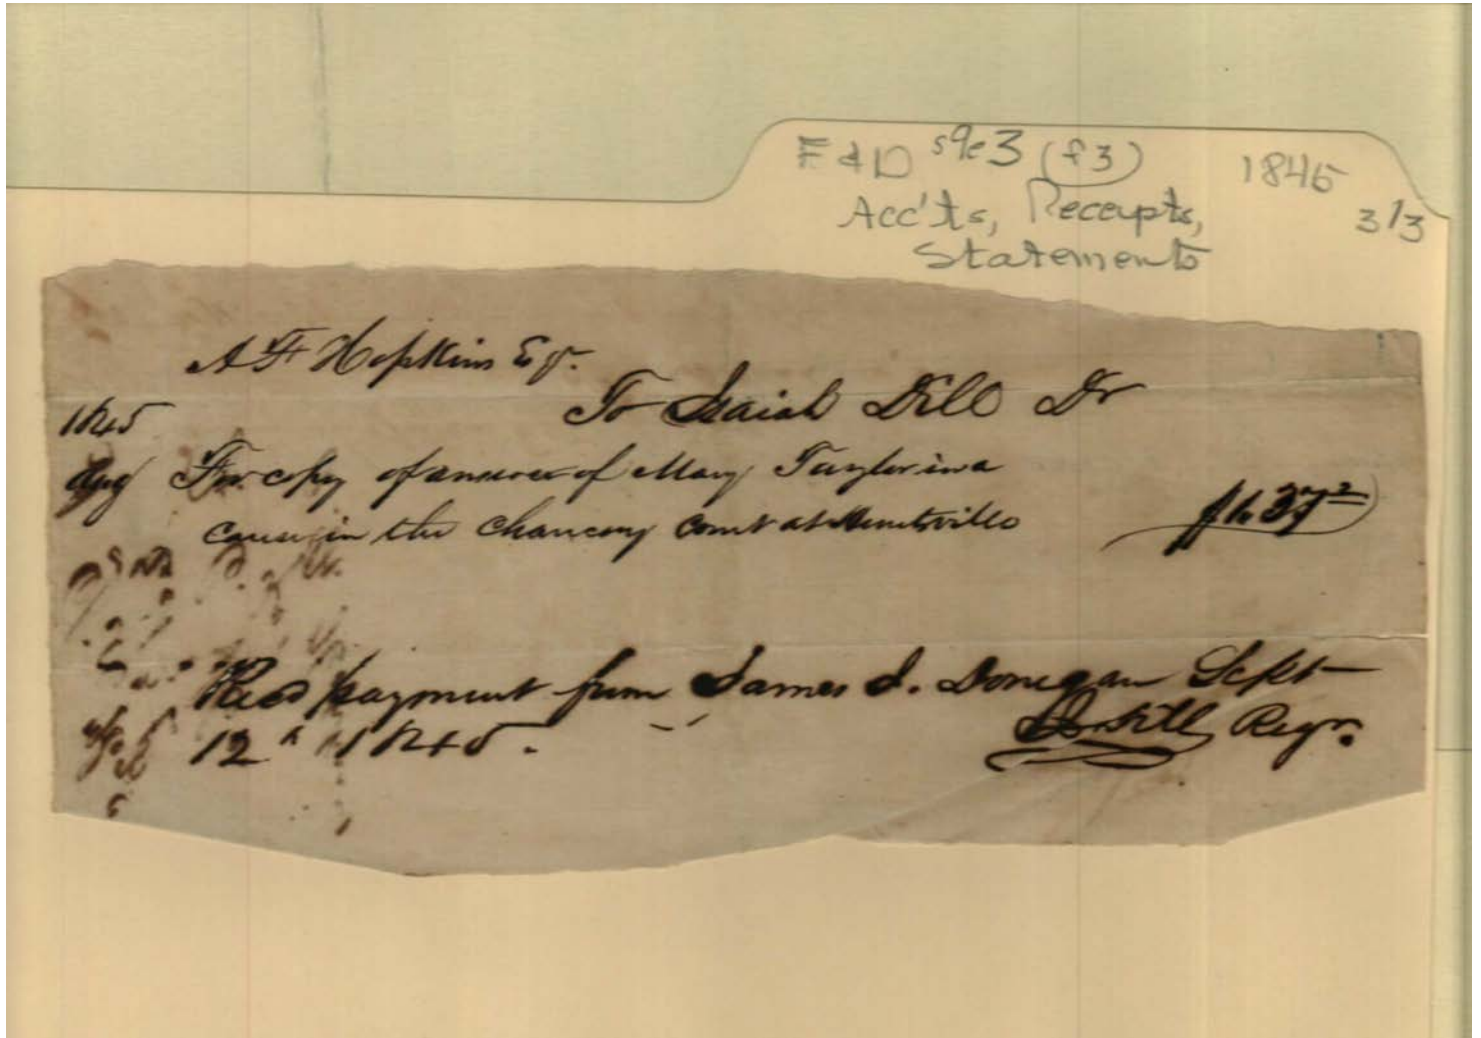 F & D s9e3 (f3) 1845
Acc'ts, Receipts, 3/3
Statements
A F Hopkins Esqr.
To Isaiah Dill Dr
1845
Aug For copy of answer of Mary Taylor in a
cause in the Chancery Court at Huntsville
Recd payment from James J. Donegan Sept
12th 1845.
I. Dill Regr.